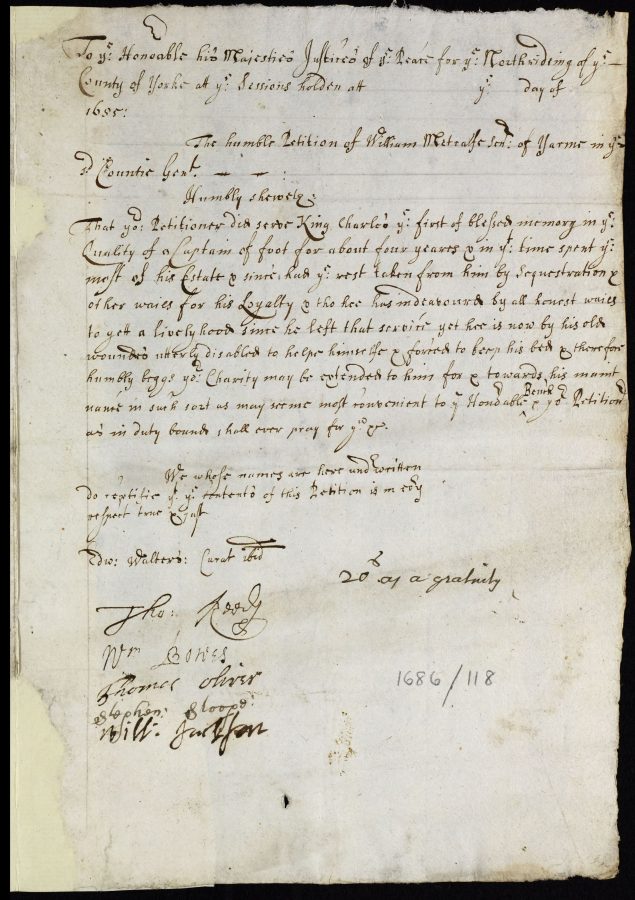 To ye Honoable his Majesties Justices of ye Peace for ye Northriding of ye
County of Yorke att ye Sessions holden att ye day of
1685:
The humble Petition of William Metcalfe senr: of Yarme in ye
sd Countie Gent.
Humbly sheweth:
That yor Petitioner did serve King Charles ye first of blessed memory in ye
Quality of a Captain of foot for about four yeares & in yt time spent ye
most of his Estate & since had ye rest taken from him by Sequestration &
other waies for his Loyalty & tho hee has indeavoured by all honest waies
to gett a livelyhood since he left that service yet hee is now by his old
wounds uterly disabled to helpe himselfe & forced to keep his bed & therefore
humbly beggs yor Charity may be extended to him for & towards his maint
nance in such sort as may seeme most convenient to ye Honoable Bench & yor Petitionr
as in duty bound shall ever pray for you &c
We whose names are here undrwritten
do certifie yt ye contents of this Petition is in evry
respect true & just
Edw: Walters: Curat ibid
20s as a gratuity
Tho: Reedy
Wm Bowes
Thomas oliver
1686/118
Stephen: Sloope
Will: Jackson